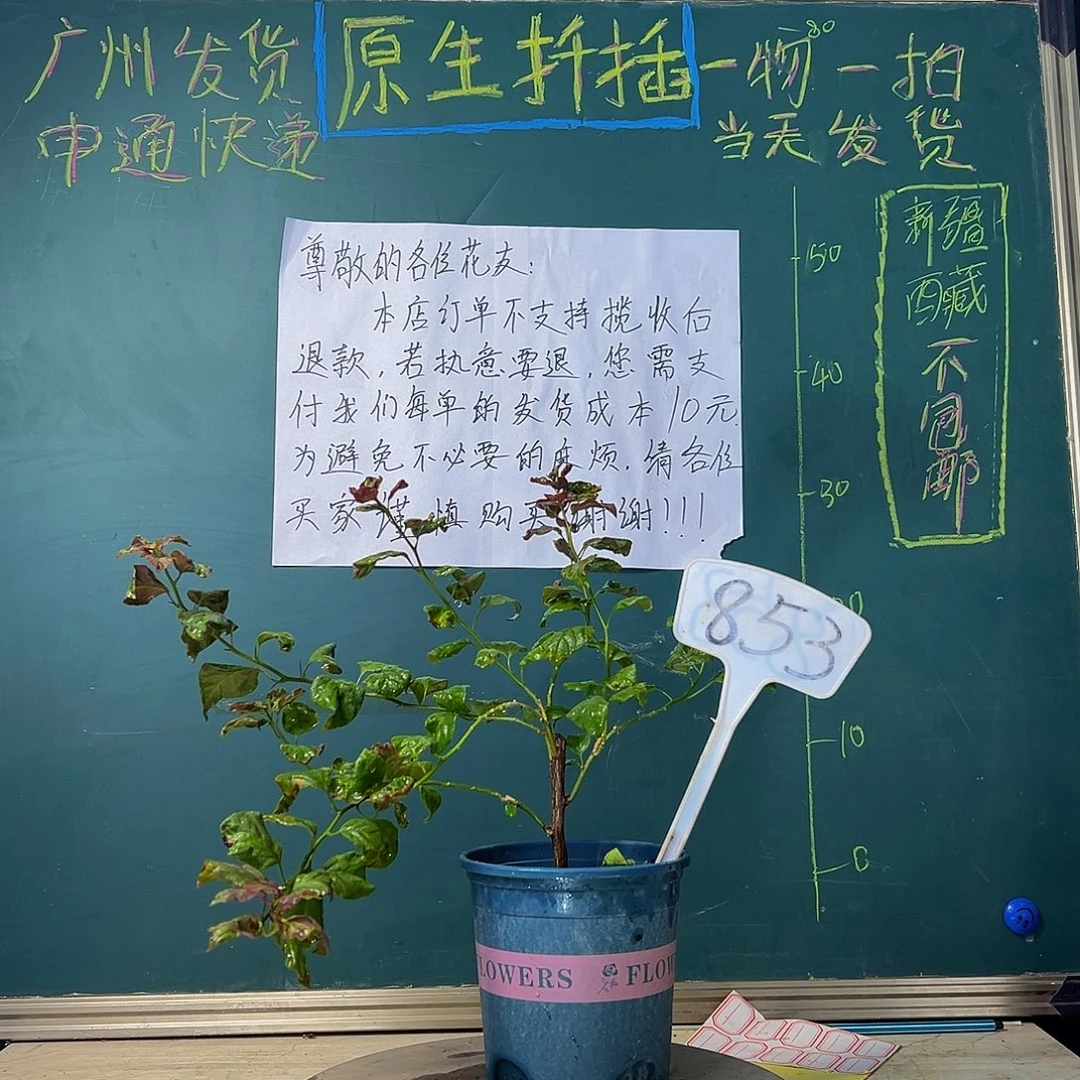 广州发货
申通快递
原生扦插
一物一拍
当天发货
80
尊敬的各位花友：
本店订单不支持揽收后
退款，若执意要退，您需支
付我们每单的发货成本10元.
为避免不必要的麻烦，请各位
买家谨慎购买 谢谢!!!
新疆
西藏
不
包
邮
50
40
30
20
10
0
853
LOWERS FLOW